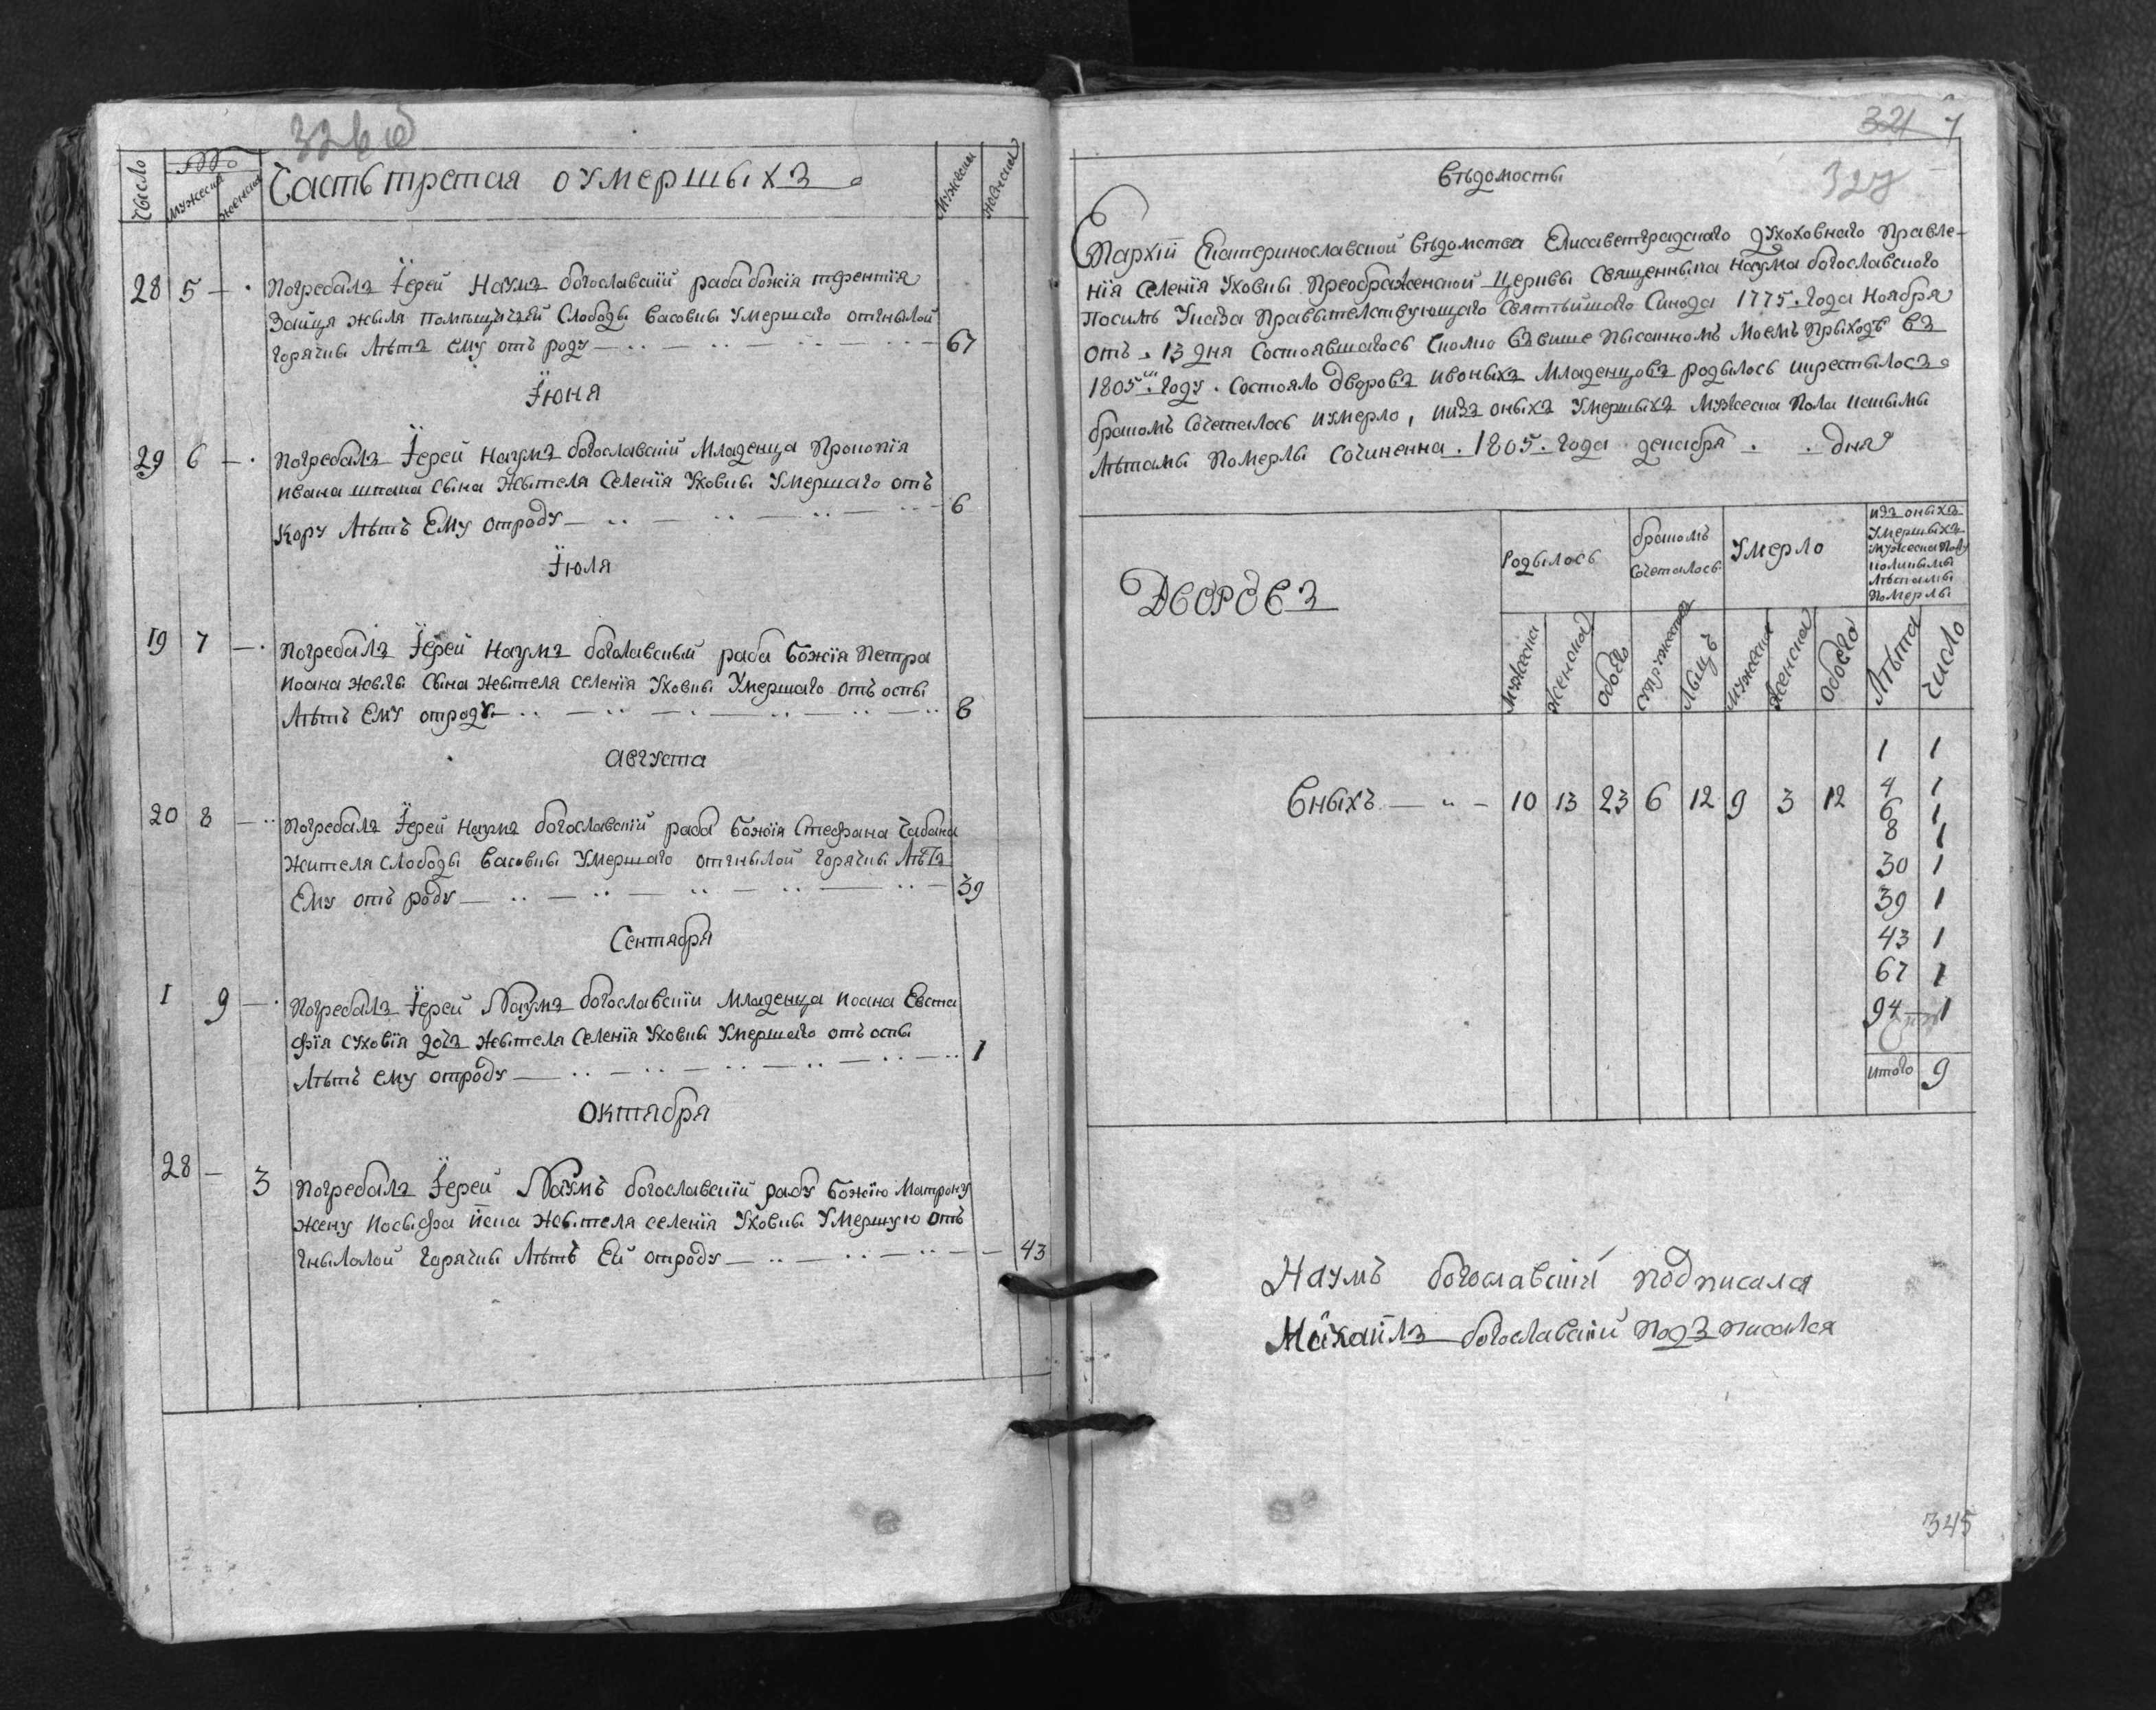 326 об
Число
№
мужеска
женска
Часть третая оумершыхъ
мужеска
женска
28 5 — Погребалъ Їерей Наумъ богославскїй раба божїя терентїя
Зайця жытеля помъщичей Слободы Васовкы Умершаго отгнылой
горячкы Лътъ ему отъ роду 67
Їюня
29 6 — Погребалъ Їерей Наумъ богославскїй Младенца Прокопїя
ивана шпака сына Жытеля Селенїя Уховкы Умершаго отъ
кору Лътъ Ему отроду 6
Їюля
19 7 — Погребалъ Їерей Наумъ богославскый раба Божїя Петра
иоана жыгы сына жытеля селенїя Уховкы Умершаго отъ оспы
Лътъ Ему отроду 8
августа
20 8 — Погребалъ Їерей Наумъ богославскїй раба Божїя Стефана Чабана
Жителя слободы Васовкы Умершаго отгнылой горячкы Лътъ
Ему отъ роду 39
Сентября
1 9 — Погребалъ Їерей Наумъ богославскїи Младенца иоана Евста
фїя суховїя дочъ жытела Селенїя Уховкы Умершаго отъ оспы
Лътъ ему отроду 1
Октября
28 — 3 Погребалъ Їерей Наумъ богославскїй рабу Божїю Матрону
жену иосыфа жытеля селенїя Уховкы Умершую отъ
гнылолой горячкы Лътъ Ей отроду 43
321
327
Въдомосты
Епархїи Екатеринославской Въдомства Елисаветградского духоховнаго Правле-
нїя Селенїя Уховкы Преображенской Церквы Священныка Наума богославского
Посилъ Указа Правытелствующаго Святъйшаго Синода 1775. Года Ноября
отъ 13 дня Состоявшагось Сколко Въвише пысанномъ моемъ прыходъ въ
1805м. году. Состояло дворовъ ивоныхъ Младенцовъ родылось икрестылосъ
бракомъ Сочеталось иумерло, иизъ оныхъ Умершыхъ Мужеска Пола искымы
Лътамы Померлы Сочиненна. 1805. года декабря . . дня
Дворовъ
Родылось
бракомъ
Сочеталось
Умерло
изъ оныхъ
Умершыхъ
мужеска Полу
иколикымы
Лътамы
Померлы
мужеска
женска
обоего
супружества
Лыцъ
мужеска
женска
обоего
Лъта
число
Вныхъ — 10 13 23 6 12 9 3 12
1 1
4 1
6 1
8 1
30 1
39 1
43 1
67 1
94 1
итого 9
Наумъ богославскїй подписался
Махайлъ богославскїй подъписался
345